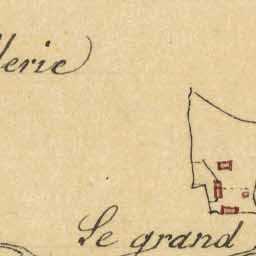 llerie
Le grand